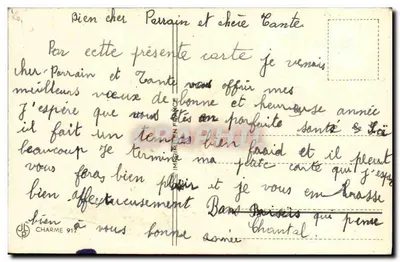 Bien cher Parrain et chère Tante
Par cette présente carte je venais
cher Parrain et Tante vous offrir mes
meilleurs vœux de bonne et heureuse année
J'espère que vous êtes en parfaite santé Ici
il fait un temps bien froid et il pleut
beaucoup Je termine ma petite carte qui j'espère
vous fera bien plaisir et je vous embrasse
bien affectueusement Bons Baisers qui pense
bien à vous bonne année Chantal.
CHARME 9